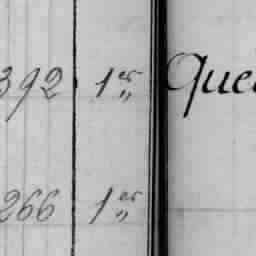 392 1er Que
266 1er